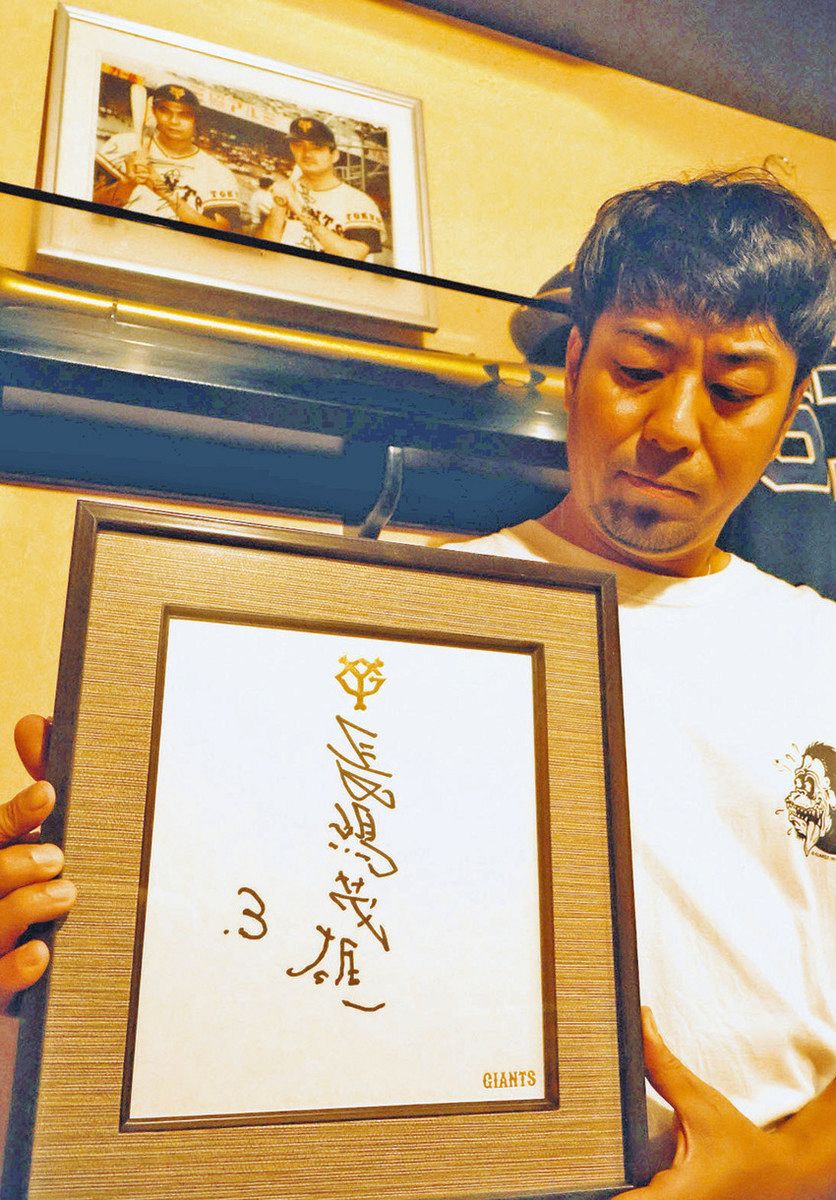 TOKYO
長嶋茂雄
3
GIANTS